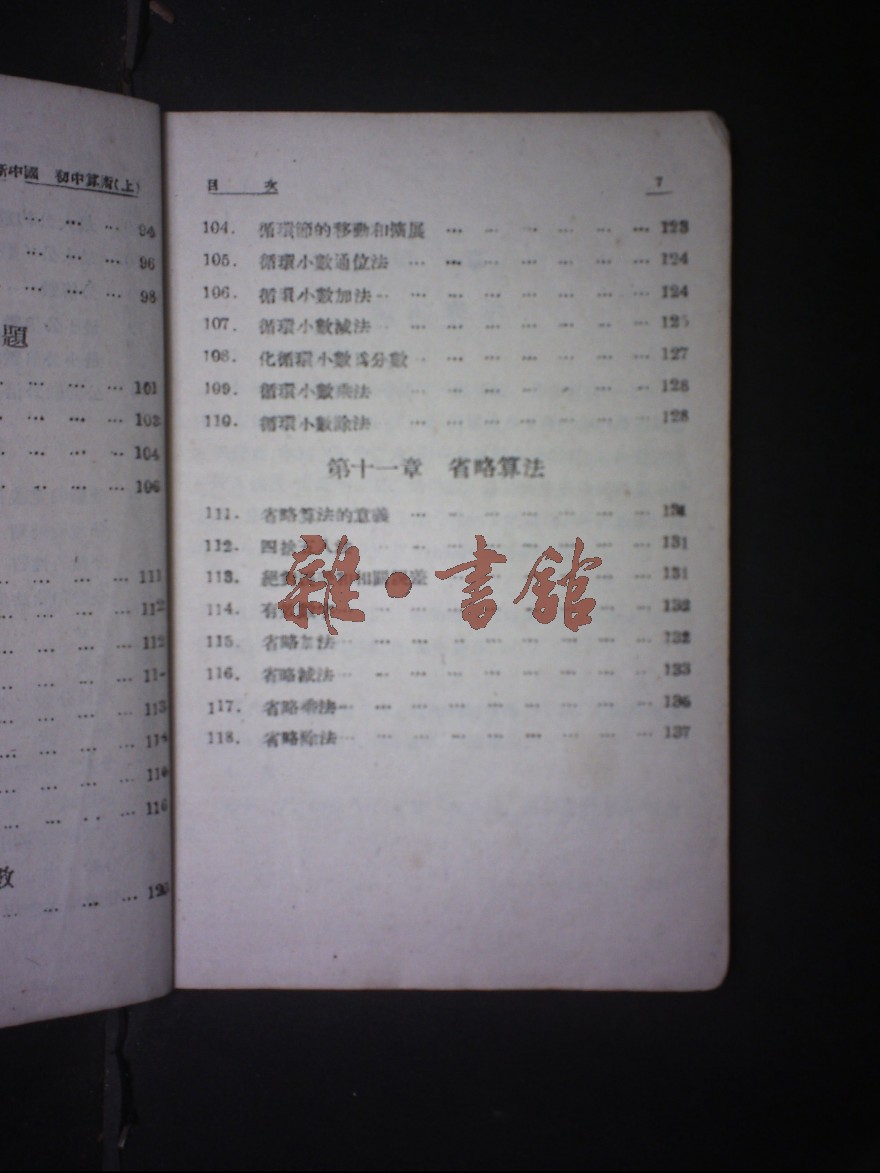 新中國 初中算術(上)
… … … 94
… … … 96
… … … 98
題
… … … … 101
… … … … 103
… … … … 104
… … … … 106
… … … … 111
… … … … 112
… … … … 112
… … … …
… … … … 113
… … … …
… … … …
… … … … 116
數
… … … …
目 次 7
104. 循環節的移動和擴展 … … … … … … … 123
105. 循環小數通位法 … … … … … … … 124
106. 循環小數加法 … … … … … … … … 124
107. 循環小數減法 … … … … … … … … 125
108. 化循環小數爲分數 … … … … … … … 127
109. 循環小數乘法 … … … … … … … 128
110. 循環小數除法 … … … … … … … 128
第十一章 省略算法
111. 省略算法的意義 … … … … … … … 131
112. 四捨五入法 … … … … … … … … 131
113. 絕對誤差和相對誤差 … … … … … … 131
114. 有 … … … … … … … … 132
115. 省略加法 … … … … … … … … … 132
116. 省略減法 … … … … … … … … … 133
117. 省略乘法 … … … … … … … … … 136
118. 省略除法 … … … … … … … … … 137
雜·書館